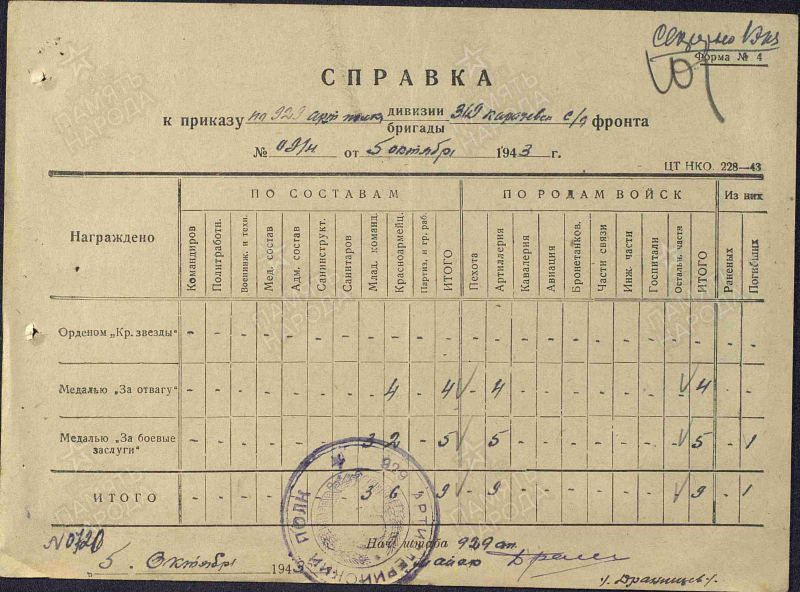 Секретно Экз
Форма № 4
СПРАВКА
к приказу по 929 арт полку дивизии 349 с/д фронта
бригады
№ 091н от 5 октября 1943 г.
ЦТ НКО 228—43
Награждено ПО СОСТАВАМ ПО РОДАМ ВОЙСК Из них
Командиров Политработн. Военинж. и техн. Мед. состав Адм. состав Санинструкт. Санитаров Млад. команд. Красноармейц. Партиз. и гр. раб. ИТОГО Пехота Артиллерия Кавалерия Авиация Бронетанков. Части связи Инж. части Госпитали Остальн. части ИТОГО Раненых Погибших
Орденом „Кр. звезды" - - - - - - - - - - - - - - - - - - - - - - -
Медалью „За отвагу" - - - - - - - - 4 - 4 - 4 - - - - - - 4 - -
Медалью „За боевые заслуги" - - - - - - - 3 2 - 5 - 5 - - - - - - 5 - 1
ИТОГО - - - - - - - 3 6 - 9 - 9 - - - - - - 9 - 1
929 АРТИЛЛЕРИЙСКИЙ ПОЛК
N 0720
Нач штаба 929 ап.
„5" Октября 1943
майор
ПАМЯТЬ НАРОДА